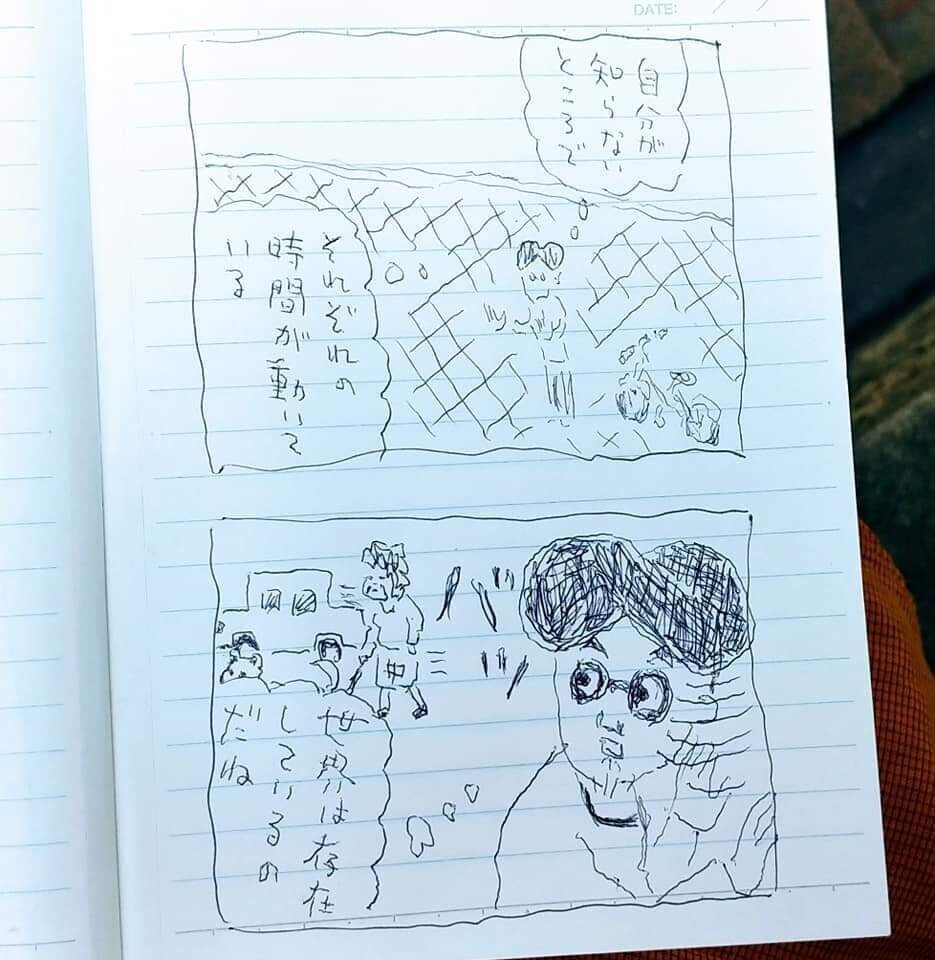 DATE:
自分が
知らない
ところで
それぞれの
時間が動いて
いる
世界は存在
しているの
だね